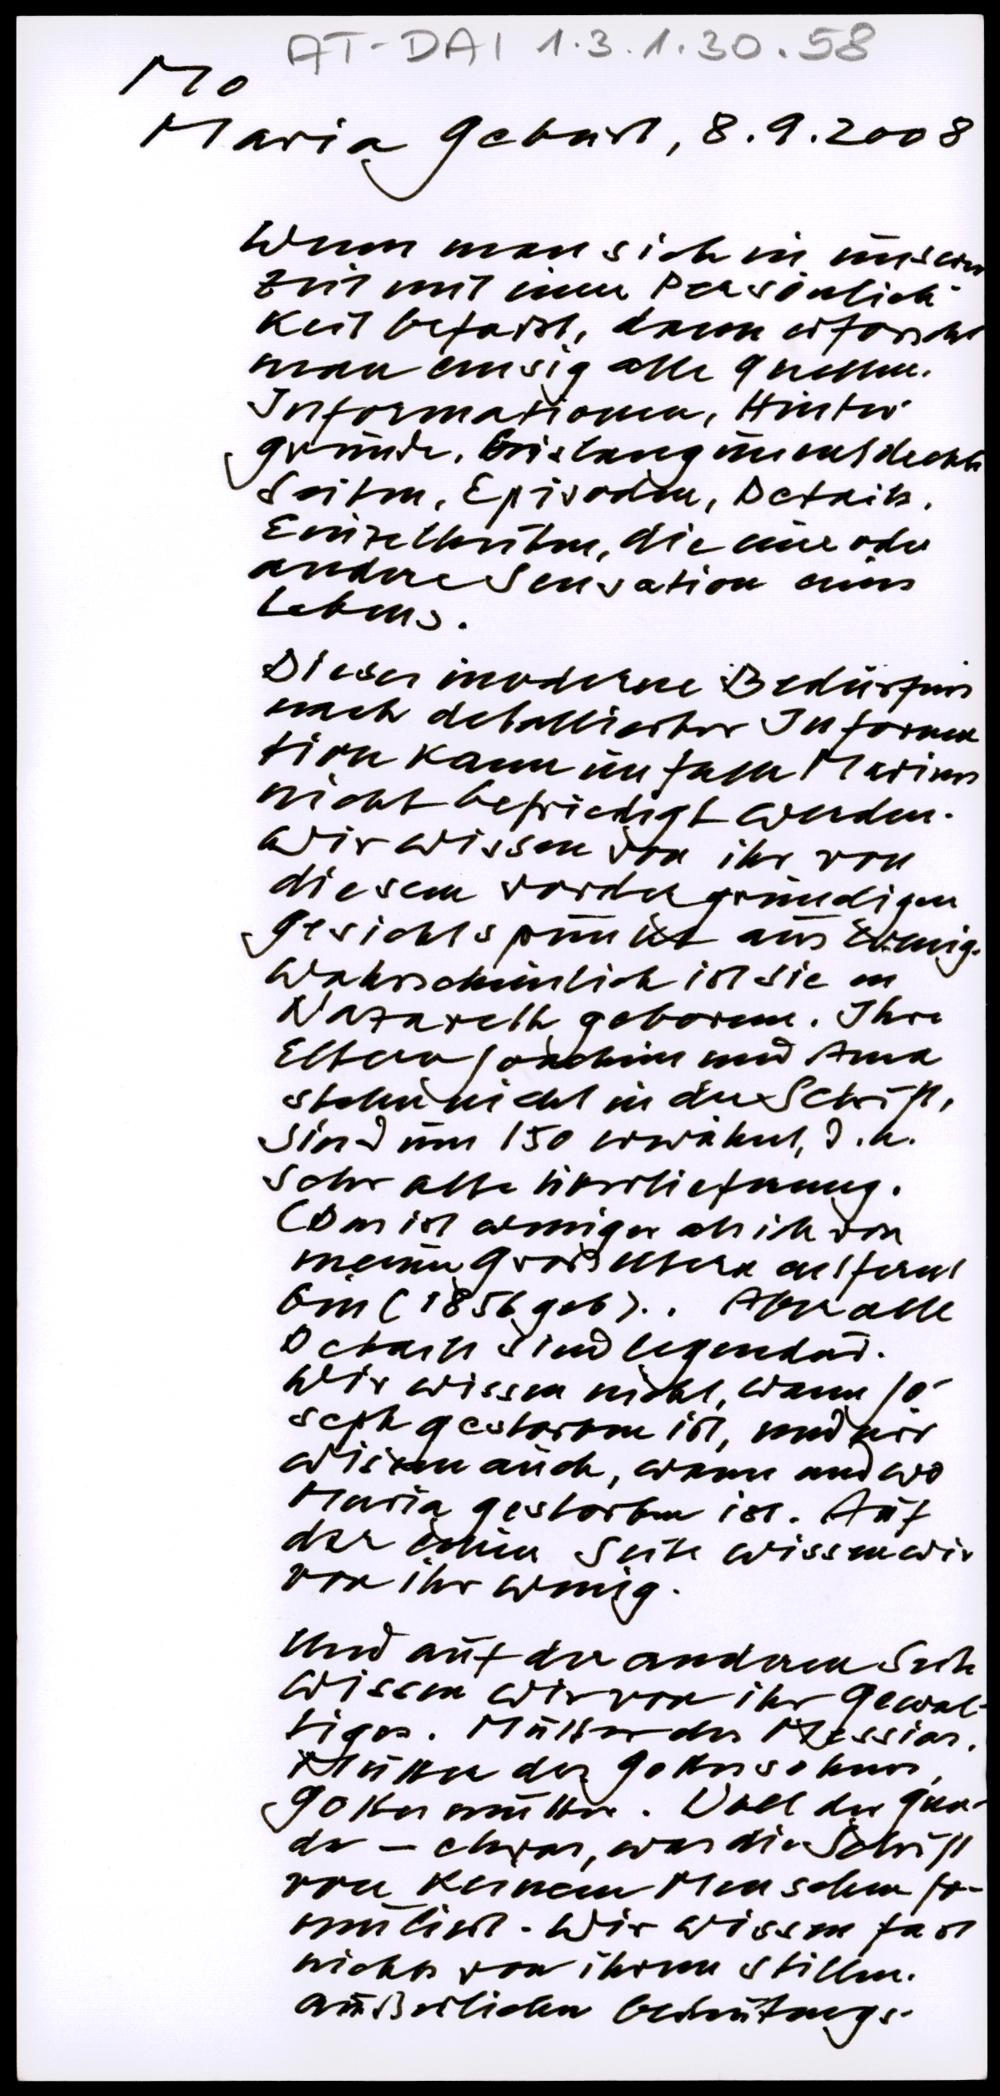 AT-DAI 1.3.1.30.58
Mo
Maria Geburt, 8.9.2008
Wenn man sich in unserer
Zeit mit einer Persönlich-
keit befasst, dann erforscht
man emsig alle Quellen.
Informationen, Hinter-
gründe, bislang unentdeckte
Seiten, Episoden, Details.
Einzelheiten, die eine oder
andere Sensation eines
Lebens.
Dieses moderne Bedürfnis
nach detaillierter Informa
tion kann im Falle Mariens
nicht befriedigt werden.
Wir wissen von ihr von
diesem vordergründigen
Gesichtspunkt aus wenig.
Wahrscheinlich ist sie in
Nazareth geboren. Ihre
Eltern Joachim und Anna
stehen nicht in der Schrift,
sind um 150 erwähnt, d.h.
sehr alte Überlieferung.
(Das ist weniger als ich von
meinen Großeltern entfernt
bin (1856 geb). . Aber alle
Details sind legendär.
Wir wissen nicht, wann Jo-
seph gestorben ist, und wir
wissen auch, wann und wo
Maria gestorben ist. Auf
der einen Seite wissen wir
von ihr wenig.
Und auf der anderen Seite
wissen wir von ihr Gewal-
tiges. Mutter des Messias.
Mutter des Gottessohnes,
Gottesmutter. Voll der Gna-
de – etwas, was die Schrift
von keinem Menschen for-
muliert. Wir wissen fast
nichts von ihrem stillen.
äußerlichen bedeutungs-